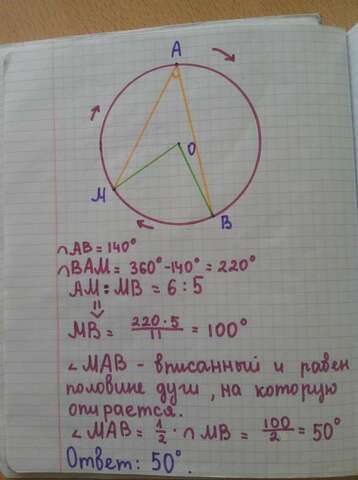 A
O
M
B
∩AB = 140°
∩BAM = 360° - 140° = 220°
AM : MB = 6 : 5
⇓
MB = 220·5/11 = 100°
∠MAB - вписанный и равен
половине дуги, на которую
опирается.
∠MAB = 1/2 · ∩MB = 100/2 = 50°
Ответ: 50°.